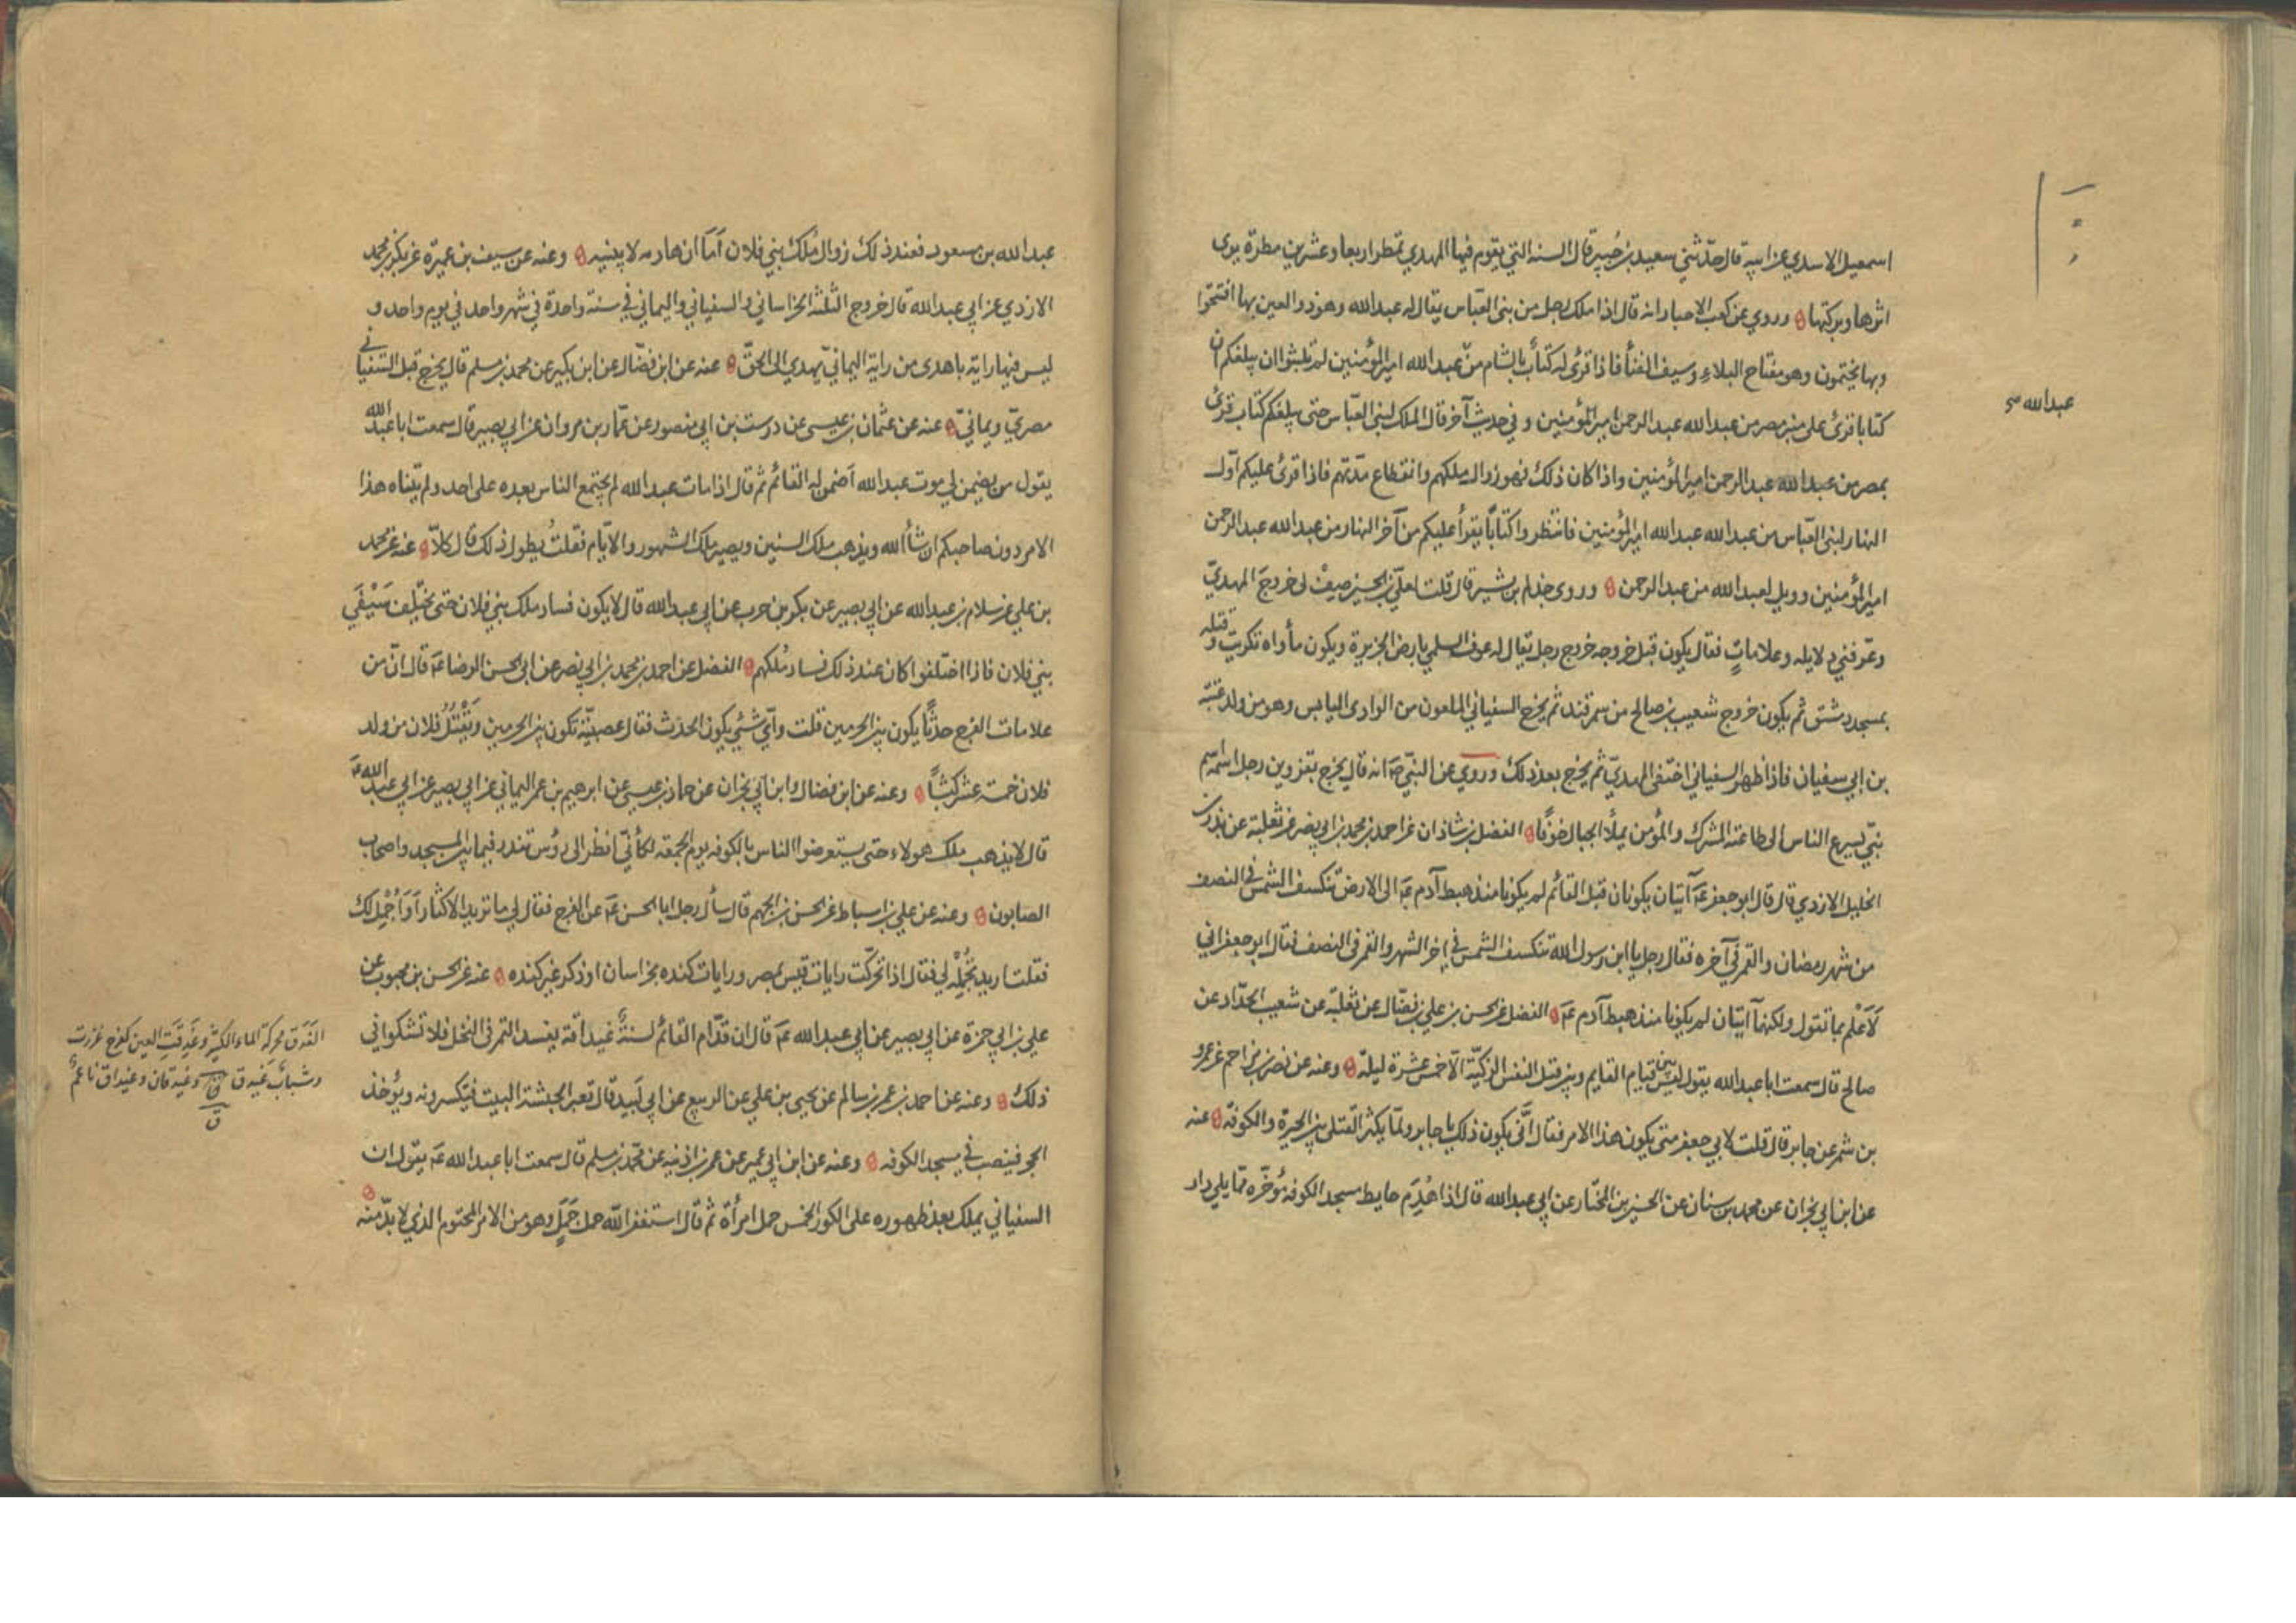 اسمعيل الاسدي عن ابيه قال حدّثني سعيد بن جُبير قال السنه التي يقوم فيها المهدي تمطر اربعا وعشرين مطرة يرى
اثرها وبركتها وروي عن كعب الاحبار انه قال اذا ملك رجل من بنى العبّاس يقال له عبدالله وهو ذو العين بها افتتحوا
وبها يختمون وهو مفتاح البلاءِ وسيف الفنأ فاذا قرئ له كتابٌ بالشام من عبدالله امير المؤمنين لم تلبثوا ان يبلغكم ان
عبدالله
كتابا قرئ على منبر مصر من عبدالله عبدالرحمن امير المؤمنين وفي حديث آخر قال الملك لبنى العبّاس حتى يبلغكم كتاب قرئ
بمصر من عبدالله عبدالرحمن امير المؤمنين واذا كان ذلك فهو زوال ملكهم وانقطاع مدّتهم فاذا قرئ عليكم اوّل
النهار لبنى العبّاس من عبدالله عبدالله امير المؤمنين فانتظروا كتاباً يقرأ عليكم من آخر النهار من عبدالله عبدالرحمن
امير المؤمنين وويل لعبدالله من عبدالرحمن وروى حذلم بن بشير قال قلت لعليّ بن الحسين صِفْ لى خروجَ المهديّ
وعرّفني دلايله وعلاماتٍ فقال يكون قبل خروجه خروج رجل يقال له عوف السلمي بارض الجزيرة ويكون مأواه تكريت وقتله
بمسجد دمشق ثم يكون خروج شعيب بن صالح من سمرقند ثم يخرج السفياني الملعون من الوادى اليابس وهو من ولد عتبة
بن ابي سفيان فاذا ظهر السفياني اختفى المهديّ ثم يخرج بعد ذلك وروي عن النبيّ صَ انه قال يخرج بقزوين رجل اسمه اسم
نبيّ يسرع الناس الى طاعته المشرك والمؤمن يملأ الجبال خوفًا الفضل بن شاذان عن احمد بن محمد بن ابي نصر عن ثعلبة عن بدر بن
الخليل الازدي قال قال ابو جعفر عَ آيتان يكونان قبل القائم لم يكونا منذ هبط آدم عَ الى الارض تنكسف الشمس في النصف
من شهر رمضان والقمر في آخره فقال رجل يا ابن رسول الله تنكسف الشمس في اخر الشهر والقمر فى النصف فقال ابو جعفر اني
لَاَعْلم بما تقول ولكنهما آيتان لم يكونا منذ هبط آدم عَ الفضل عن الحسن بن علي بن فضّال عن ثعلبة عن شعيب الحدّاد عن
صالح قال سمعت ابا عبدالله يقول ليس بين قيام القايم وبين قتل النفس الزكيّة الّا خمس عشرة ليلة وعنه عن نصر بن مزاحم عن عمرو
بن شمر عن جابر قال قلت لابي جعفر متى يكون هذا الامر فقال انّى يكون ذلك يا جابر ولمّا يكثر القتلى بين الحيرة والكوفة عنه
عن ابن ابي نجران عن محمد بن سنان عن الحسين بن المختار عن ابي عبدالله قال اذا هُدِم حايط مسجد الكوفه مُؤخّره ممّا يلي دار
عبدالله بن مسعود فعند ذلك زوال مُلك بني فلان اَمَا ان هادمه لا يبنيه وعنه عن سيف بن عميرة عن بكر بن محمد
الازدي عن ابي عبدالله قال خروج الثلثه الخراساني والسفياني واليماني في سنة واحدة في شهر واحد في يوم واحد و
ليس فيها راية باهدى من راية اليمانيّ يهدي الى الحقّ عنه عن ابن فضّال عن ابن بكير عن محمد بن مسلم قال يخرج قبل السّفيانى
مصريّ ويمانيّ عنه عن عثمان بن عيسى عن درست بن ابي منصور عن عمّار بن مروان عن ابي بصير قال سمعت ابا عبدالله
يقول من يضمن لي موت عبدالله اَضمن له القائم ثم قال اذا مات عبدالله لم يجتمع الناس بعده على احد ولم يتناه هذا
الامر دون صاحبكم ان شأ الله ويذهب ملك السنين ويصير ملك الشهور والايّام فقلتُ يطول ذلك قال كلاّ عنه عن محمد
بن علي عن سلام بن عبدالله عن ابي بصير عن بكر بن حرب عن ابي عبدالله قال لا يكون فساد ملك بني فلان حتى يختلف سَيْفَي
بني فلان فاذا اختلفوا كان عند ذلك فساد مُلكهم الفضل عن احمد بن محمد بن ابي نصر عن ابى الحسن الرضا عَ قال انّ من
علامات الفرج حدثًا يكون بين الحرمين قلت وايّ شئي يكون الحدث فقال عصبيّة تكون بين الحرمين ويَقْتُلُ فلان من ولد
فلان خمسة عشر كبشاً وعنه عن ابن فضال وابن ابي نجران عن حماد بن عيسى عن ابرهيم بن عمر اليماني عن ابي بصير عن ابي عبدالله عَ
قال لا يذهب ملك هولاء حتى يستعرضوا الناس بالكوفه يوم الجمعة لكأنّي انظر الى رؤس تندر فيما بين المسجد واصحاب
الصابون وعنه عن علي بن اسباط عن الحسن بن الجهم قال سأل رجل ابا الحسن عَ عن الفرج فقال لي ما تريد الاكثار اَوَ اُجْمِل لك
فقلت اريد تُجْمِلْه لي فقال اذا تحرّكت رايات قيس بمصر ورايات كنده بخراسان او ذكر غير كنده عنه عن الحسن بن محبوب عن
علي بن ابي حمزة عن ابي بصير عن ابي عبدالله عَ قال ان قدّام القائم لسنةً غيداقة يفسد التمر فى النخل فلا تشكوا في
الغَدَق محركة الماء الكثير وغَدِقَتِ العين كفرح غزرت
وشبابٌ غَيدق وغيدقان وغيداق ناعمٌ
ق
ذلك وعنه عن احمد بن عمر بن سالم عن يحيى بن علي عن الربيع عن ابي لَبيد قال تغير الحبشة البيت فيَكسرونه ويُؤخذ
الحجر فينصب في مسجد الكوفه وعنه عن ابن ابي عمير عن عمر بن اذينه عن محمّد بن مسلم قال سمعت ابا عبدالله عَ يقول ان
السفياني يملك بعد ظهوره على الكور الخمس حمل امرأة ثم قال استغفر الله حمل جَمَلٍ وهو من الامر المحتوم الذي لا بدّ منه